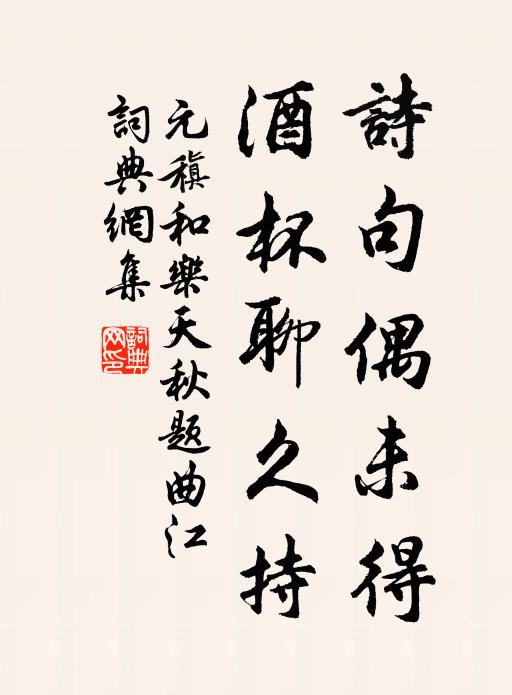 詩句偶未得
酒杯聊久持
元稹和樂天秋題曲江
詞典網集
詞典
网印